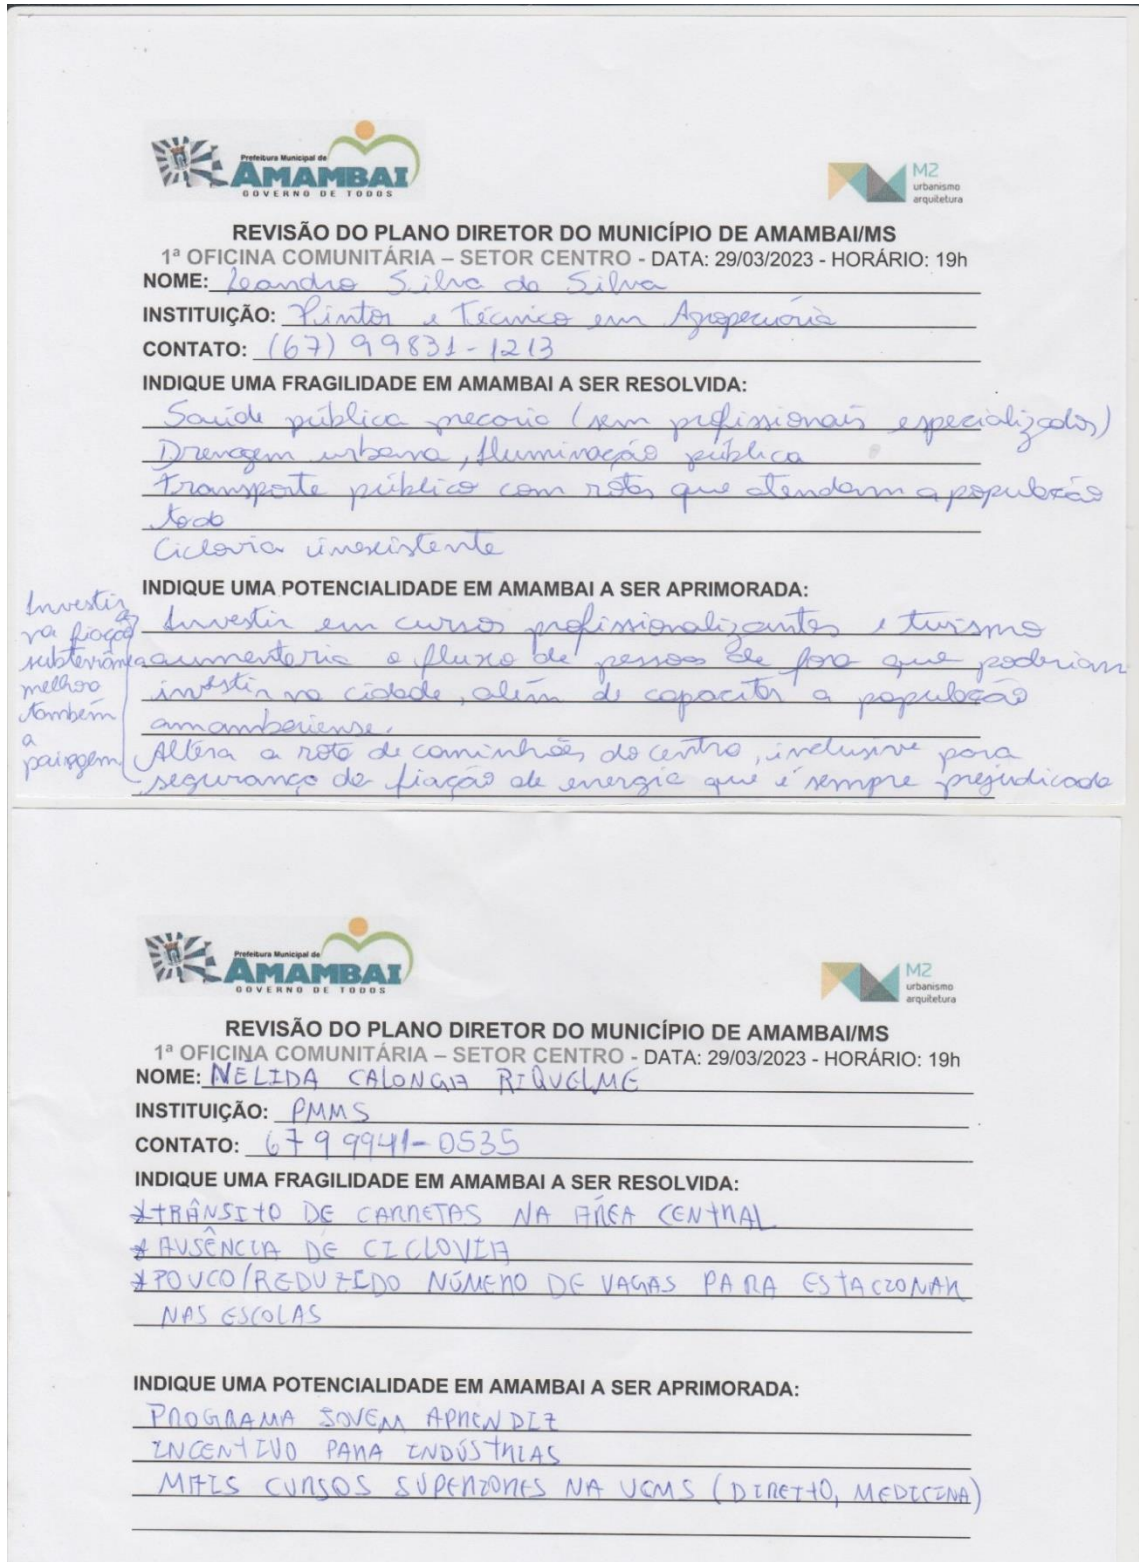 Prefeitura Municipal de
AMAMBAI
GOVERNO DE TODOS
M2
urbanismo
arquitetura
REVISÃO DO PLANO DIRETOR DO MUNICÍPIO DE AMAMBAI/MS
1ª OFICINA COMUNITÁRIA – SETOR CENTRO - DATA: 29/03/2023 - HORÁRIO: 19h
NOME: Leandro Silva da Silva
INSTITUIÇÃO: Pintor e Técnico em Agropecuária
CONTATO: (67) 99831-1213
INDIQUE UMA FRAGILIDADE EM AMAMBAI A SER RESOLVIDA:
Saúde pública precaria (sem profissionais especializados)
Drenagem urbana, Iluminação pública
Transporte público com rotas que atendam a população
toda
Ciclovia inexistente
INDIQUE UMA POTENCIALIDADE EM AMAMBAI A SER APRIMORADA:
Investir em cursos profissionalizantes e turismo
aumentaria o fluxo de pessoas de fora que poderiam
investir na cidade, além de capacitar a população
amambaiense.
Altera a rota de caminhões do centro, inclusive para
segurança da fiação de energia que é sempre prejudicada
Investir
na fiação
subterrânea
melhora
também
a
paisagem
Prefeitura Municipal de
AMAMBAI
GOVERNO DE TODOS
M2
urbanismo
arquitetura
REVISÃO DO PLANO DIRETOR DO MUNICÍPIO DE AMAMBAI/MS
1ª OFICINA COMUNITÁRIA – SETOR CENTRO - DATA: 29/03/2023 - HORÁRIO: 19h
NOME: NÉLIDA CALONGA RIQUELME
INSTITUIÇÃO: PMMS
CONTATO: 67 9 9941-0535
INDIQUE UMA FRAGILIDADE EM AMAMBAI A SER RESOLVIDA:
* TRÂNSITO DE CARRETAS NA ÁREA CENTRAL
* AUSÊNCIA DE CICLOVIA
* POUCO/REDUZIDO NÚMERO DE VAGAS PARA ESTACIONAR
NAS ESCOLAS
INDIQUE UMA POTENCIALIDADE EM AMAMBAI A SER APRIMORADA:
PROGRAMA JOVEM APRENDIZ
INCENTIVO PARA INDÚSTRIAS
MAIS CURSOS SUPERIORES NA UEMS (DIREITO, MEDICINA)